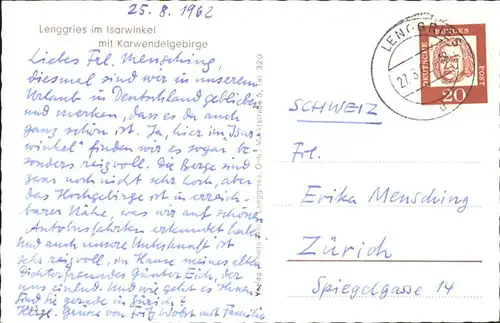 25.8.1962
Lenggries im Isarwinkel
mit Karwendelgebirge
Liebes Frl. Mensching,
diesmal sind wir in unserem
Urlaub in Deutschland geblieben
und merken, dass es da auch
ganz schön ist. Ja, hier im "Isar-
winkel" finden wir es sogar be-
sonders reizvoll. Die Berge sind
zwar noch nicht sehr hoch, aber
das Hochgebirge ist in erreich-
barer Nähe, was wir auf schönen
Autobusfahrten erkundet haben.
Und auch unsere Unterkunft ist
sehr reizvoll, im Hause meines alten
Dichterfreundes Günter Eich, der
uns einlud. Und wie geht es Ihnen?
Sind Sie gerade in Zürich?
Herzl. Grüsse von Fritz
Lenggries, Marktstraße 5, Tel. 320
LENGGRIES
DEUTSCHE BUNDESPOST
20
SCHWEIZ
Frl.
Erika Mensching
Zürich
Spiegelgasse 14